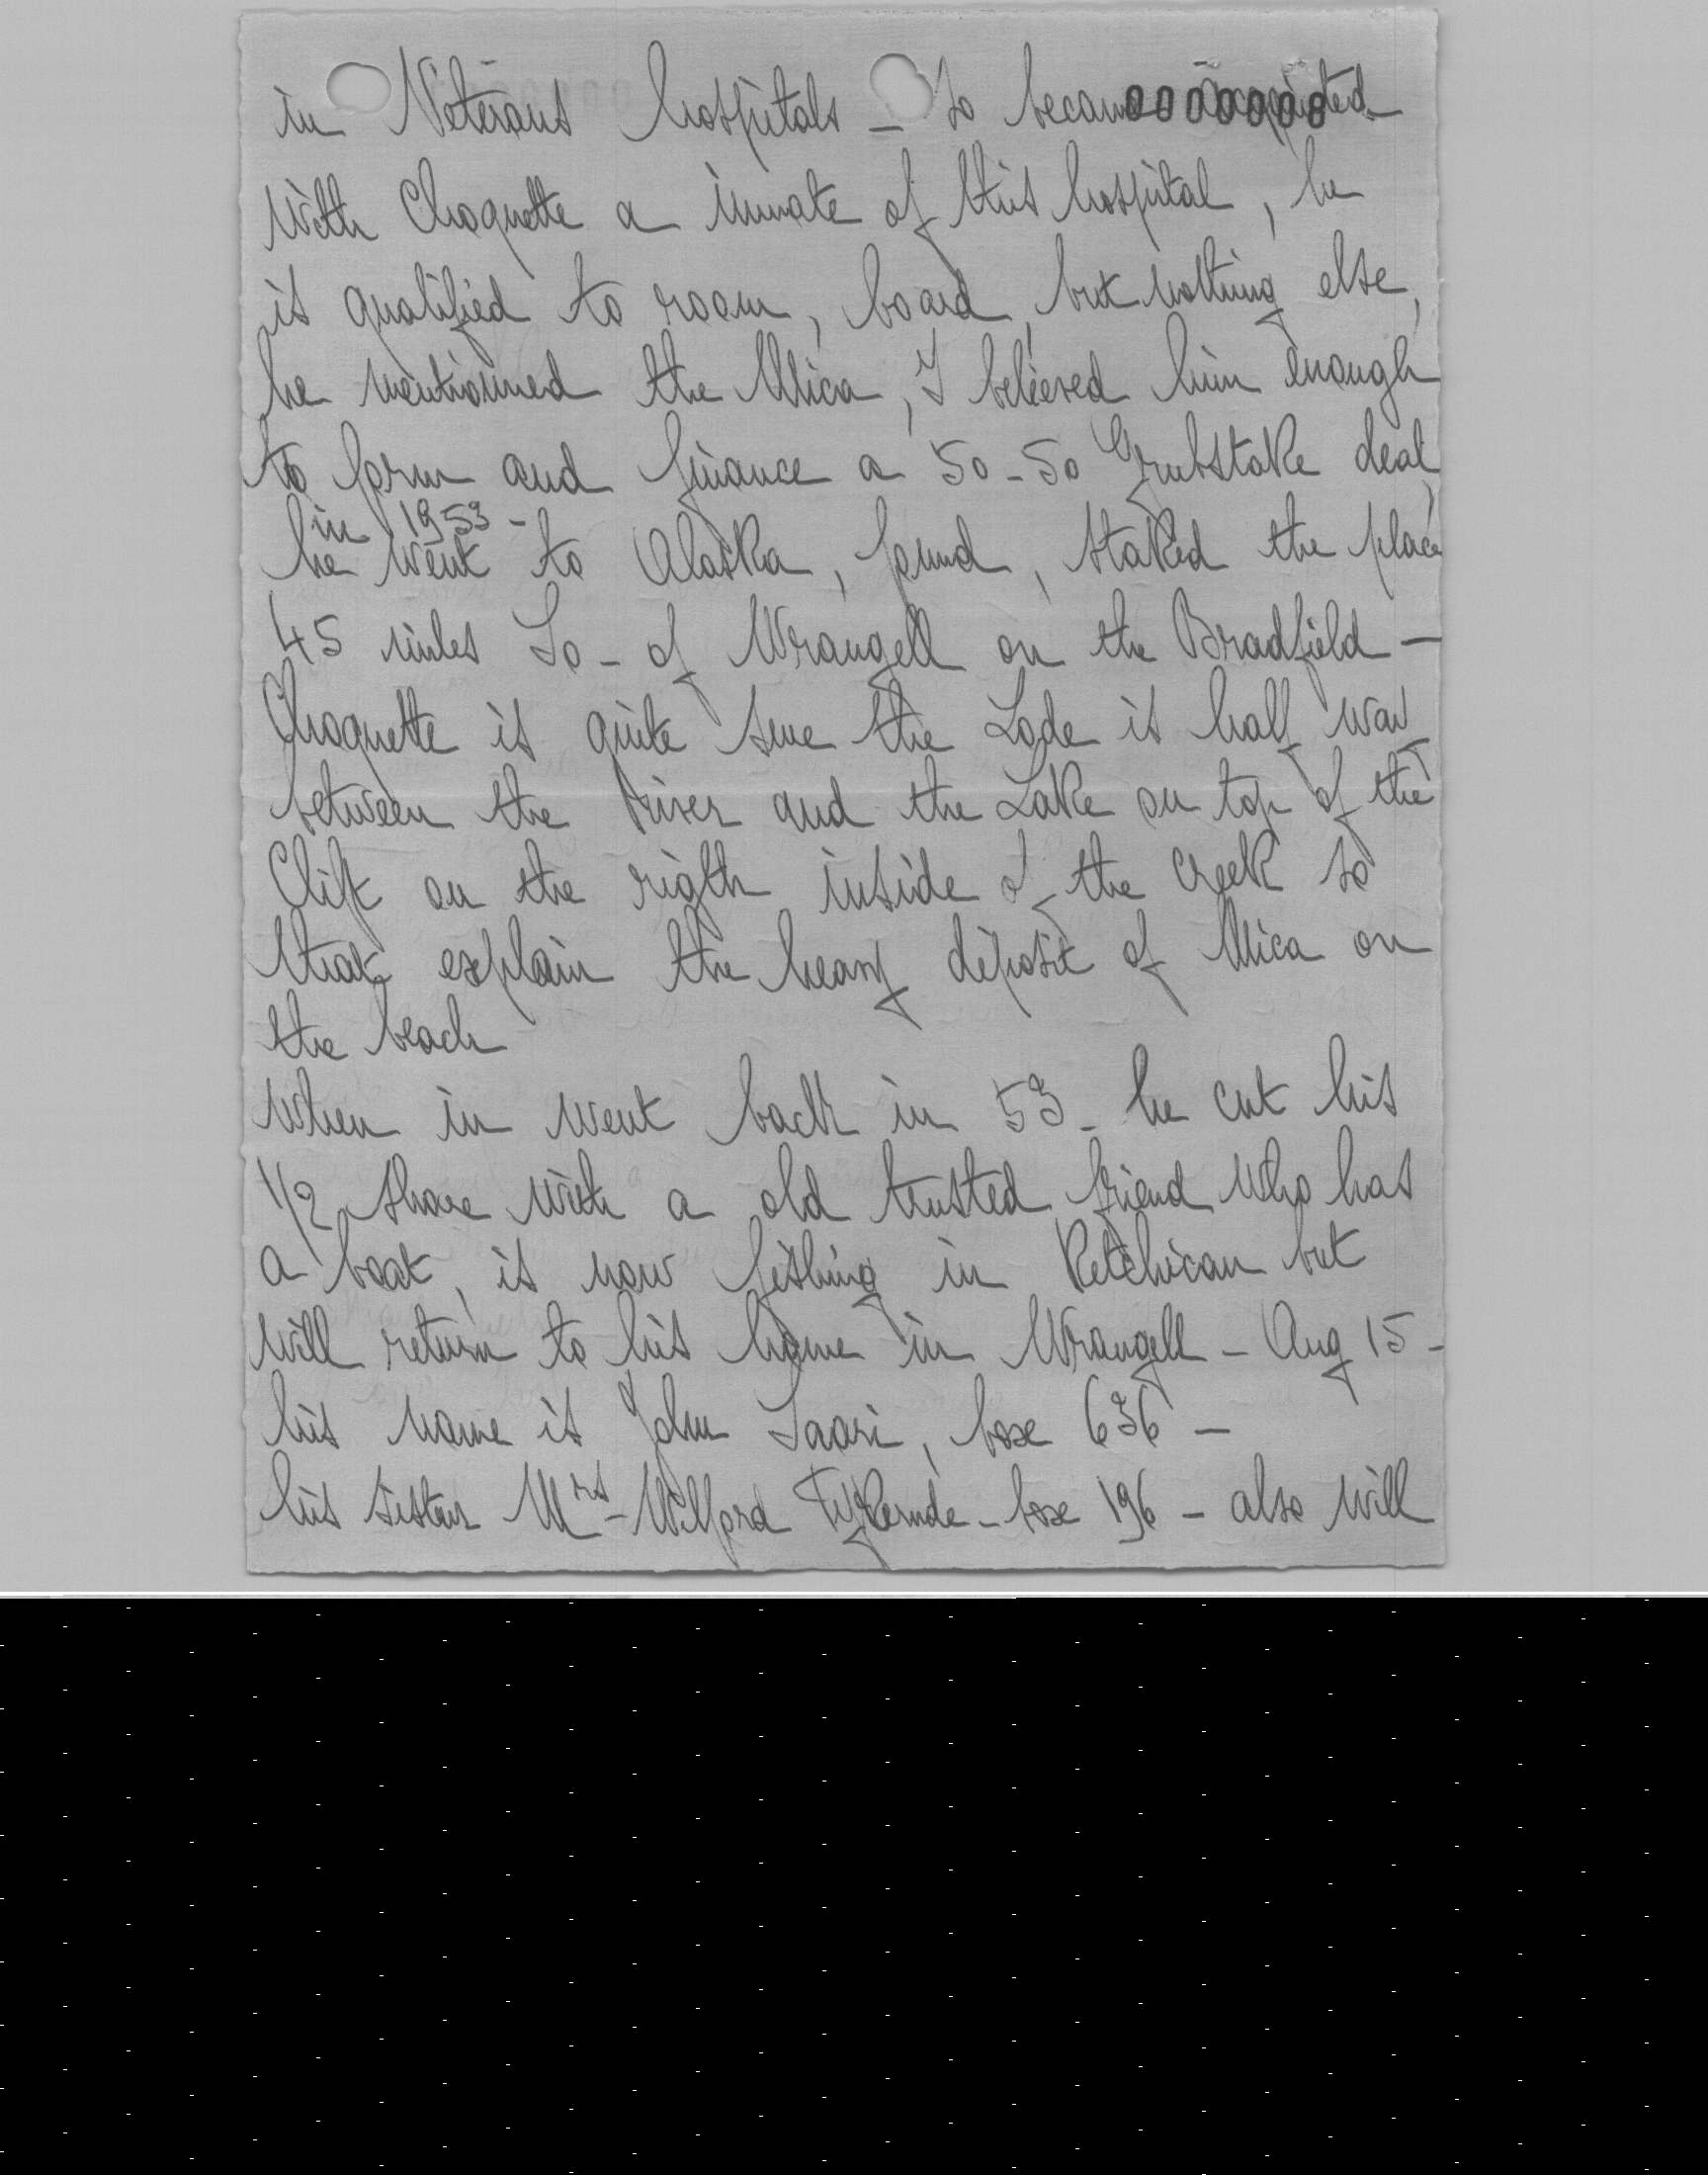 in Veterans hospitals - so became acquinted
0000008
with Choquette a inmate of this hospital, he
is qualified to room, board, but nothing else,
he mentionned the Mica, I beleeved him enough
to form and finance a 50-50 Grubstake deal
in 1953 -
he went to Alaska, found, staked the place
45 miles So- of Wrangell on the Bradfield -
Choquette is quite sure the Lode is half way
between the River and the Lake on top of the
Clift on the rigth inside of the creek so
that explain the heavy déposit of Mica on
the beach
When in went back in 53- he cut his
1/2 share with a old trusted friend who has
a boat, is now fishing in Ketchican but
will return to his home in Wrangell - Aug 15 -
his name is John Saari, boxe 636 -
his sister Mrs - Wilford - boxe 196 - also will